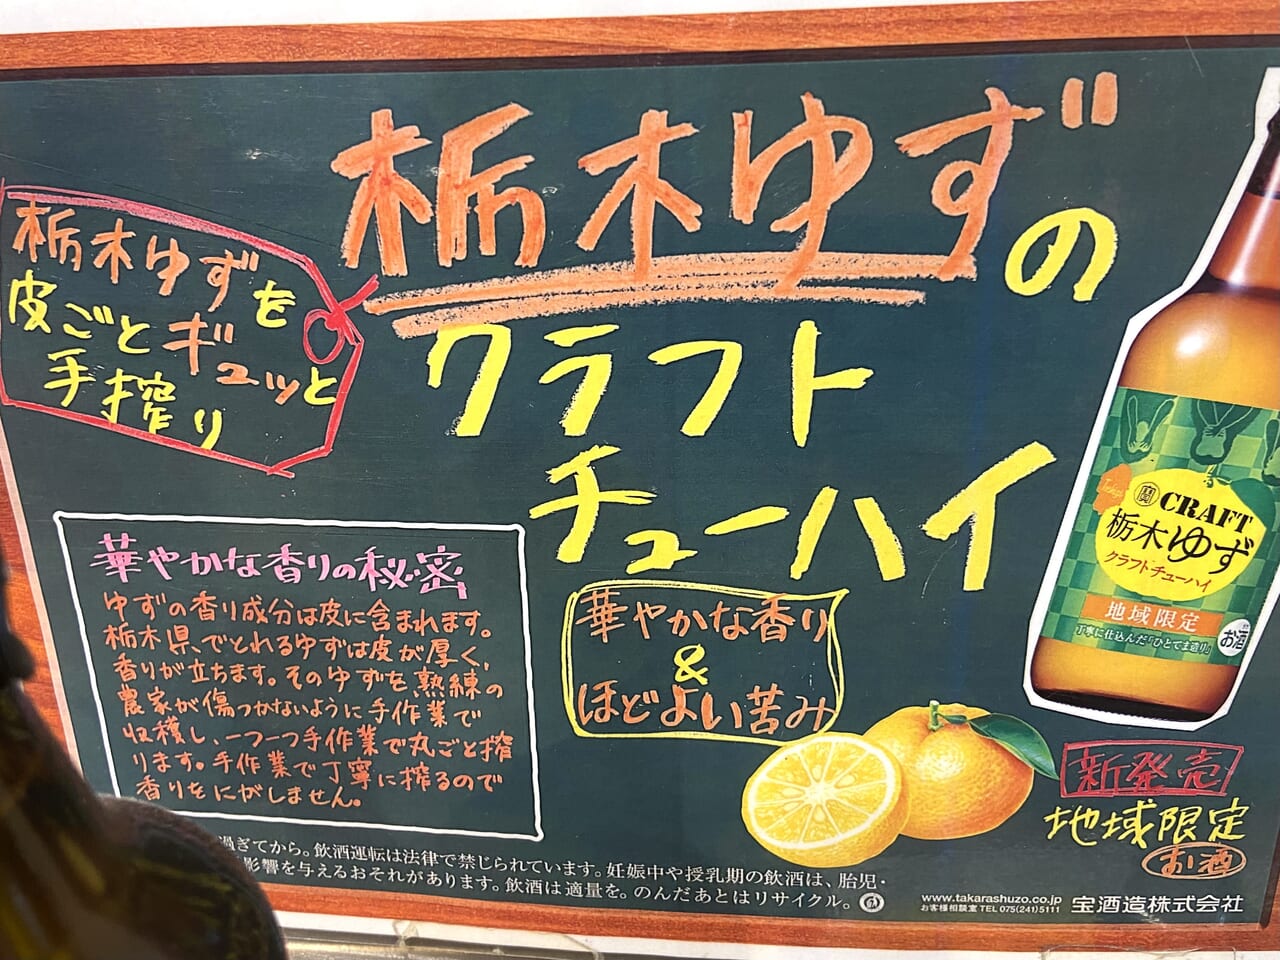 栃木ゆずの
クラフト
チューハイ
栃木ゆずを
皮ごとギュッと
手搾り
華やかな香りの秘密
ゆずの香り成分は皮に含まれます。
栃木県でとれるゆずは皮が厚く、
香りが立ちます。そのゆずを熟練の
農家が傷つかないように手作業で
収穫し、一つ一つ手作業で丸ごと搾
ります。手作業で丁寧に搾るので
香りをにがしません。
華やかな香り
&
ほどよい苦み
CRAFT
栃木ゆず
クラフトチューハイ
地域限定
丁寧に仕込んだ「ひとてま造り」
お酒
新発売
地域限定
お酒
過ぎてから。飲酒運転は法律で禁じられています。妊娠中や授乳期の飲酒は、胎児・
影響を与えるおそれがあります。飲酒は適量を。のんだあとはリサイクル。
www.takarashuzo.co.jp
お客様相談室 TEL 075(241)5111
宝酒造株式会社